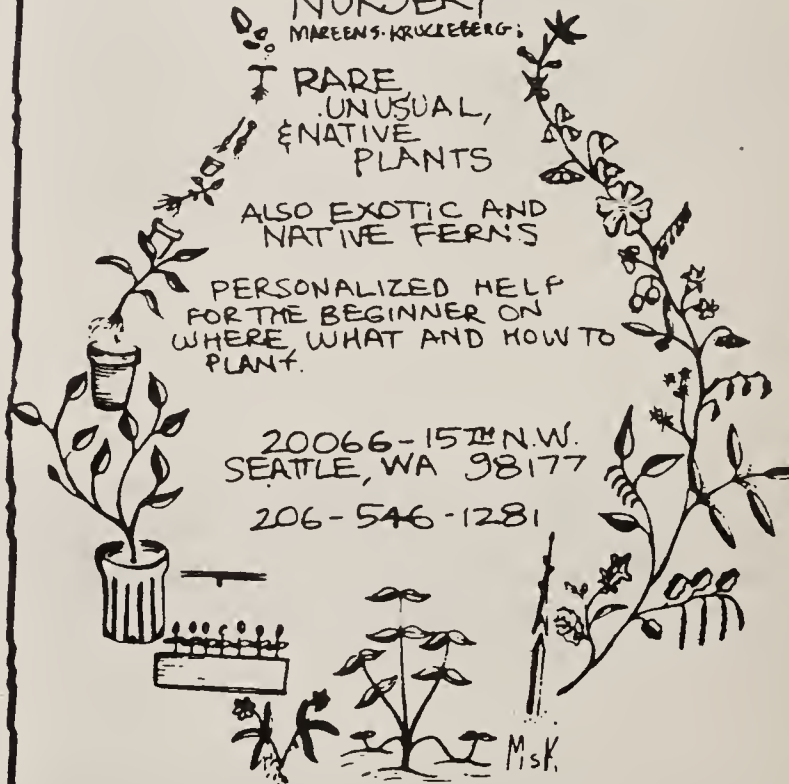 NURSERY
MAREEN S. KRUCKEBERG:
RARE,
UNUSUAL,
& NATIVE
PLANTS
ALSO EXOTIC AND
NATIVE FERNS
PERSONALIZED HELP
FOR THE BEGINNER ON
WHERE WHAT AND HOW TO
PLANT.
20066-15TH N.W.
SEATTLE, WA 98177
206-546-1281
MsK.